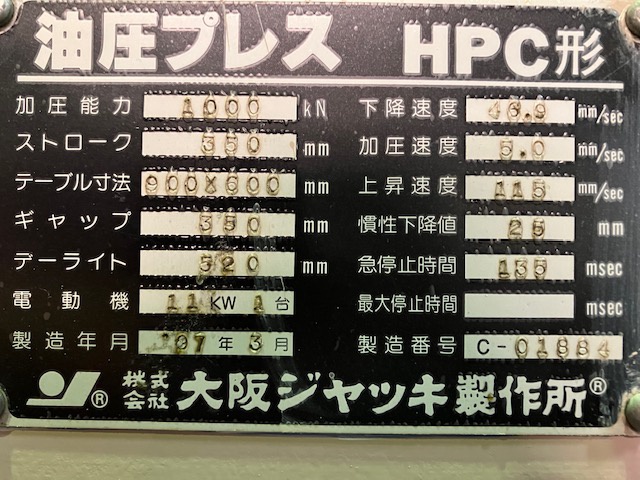 油圧プレス HPC形
加圧能力 1000 kN 下降速度 46.9 mm/sec
ストローク 350 mm 加圧速度 5.0 mm/sec
テーブル寸法 900×600 mm 上昇速度 115 mm/sec
ギャップ 350 mm 慣性下降値 25 mm
デーライト 520 mm 急停止時間 155 msec
電動機 11KW 1台 最大停止時間 msec
製造年月 '07年3月 製造番号 C-01884
® 株式会社 大阪ジヤツキ製作所®